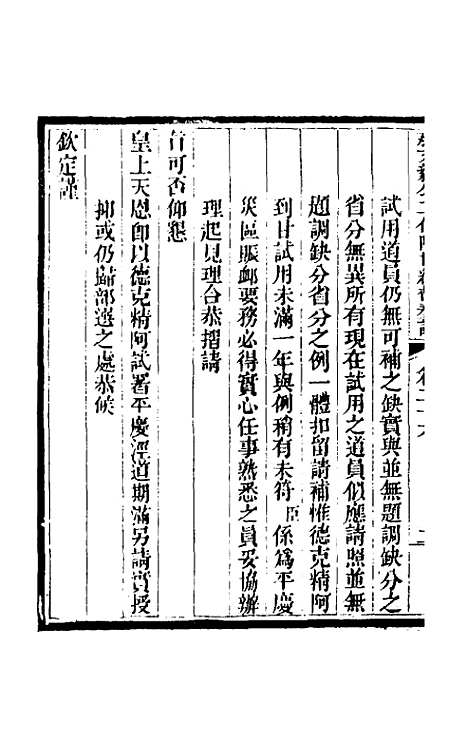 試用道員仍無可補之缺實與並無題調缺分之
省分無異所有現在試用之道員似應請照並無
題調缺分省分之例一體扣留請補惟德克精阿
到甘試用未滿一年與例稍有未符臣係爲平慶
災區賑卹要務必得實心任事熟悉之員妥協辦
理起見理合恭摺請
旨可否仰懇
皇上天恩卽以德克精阿試署平慶涇道期滿另請實授
抑或仍歸部選之處恭候
欽定謹